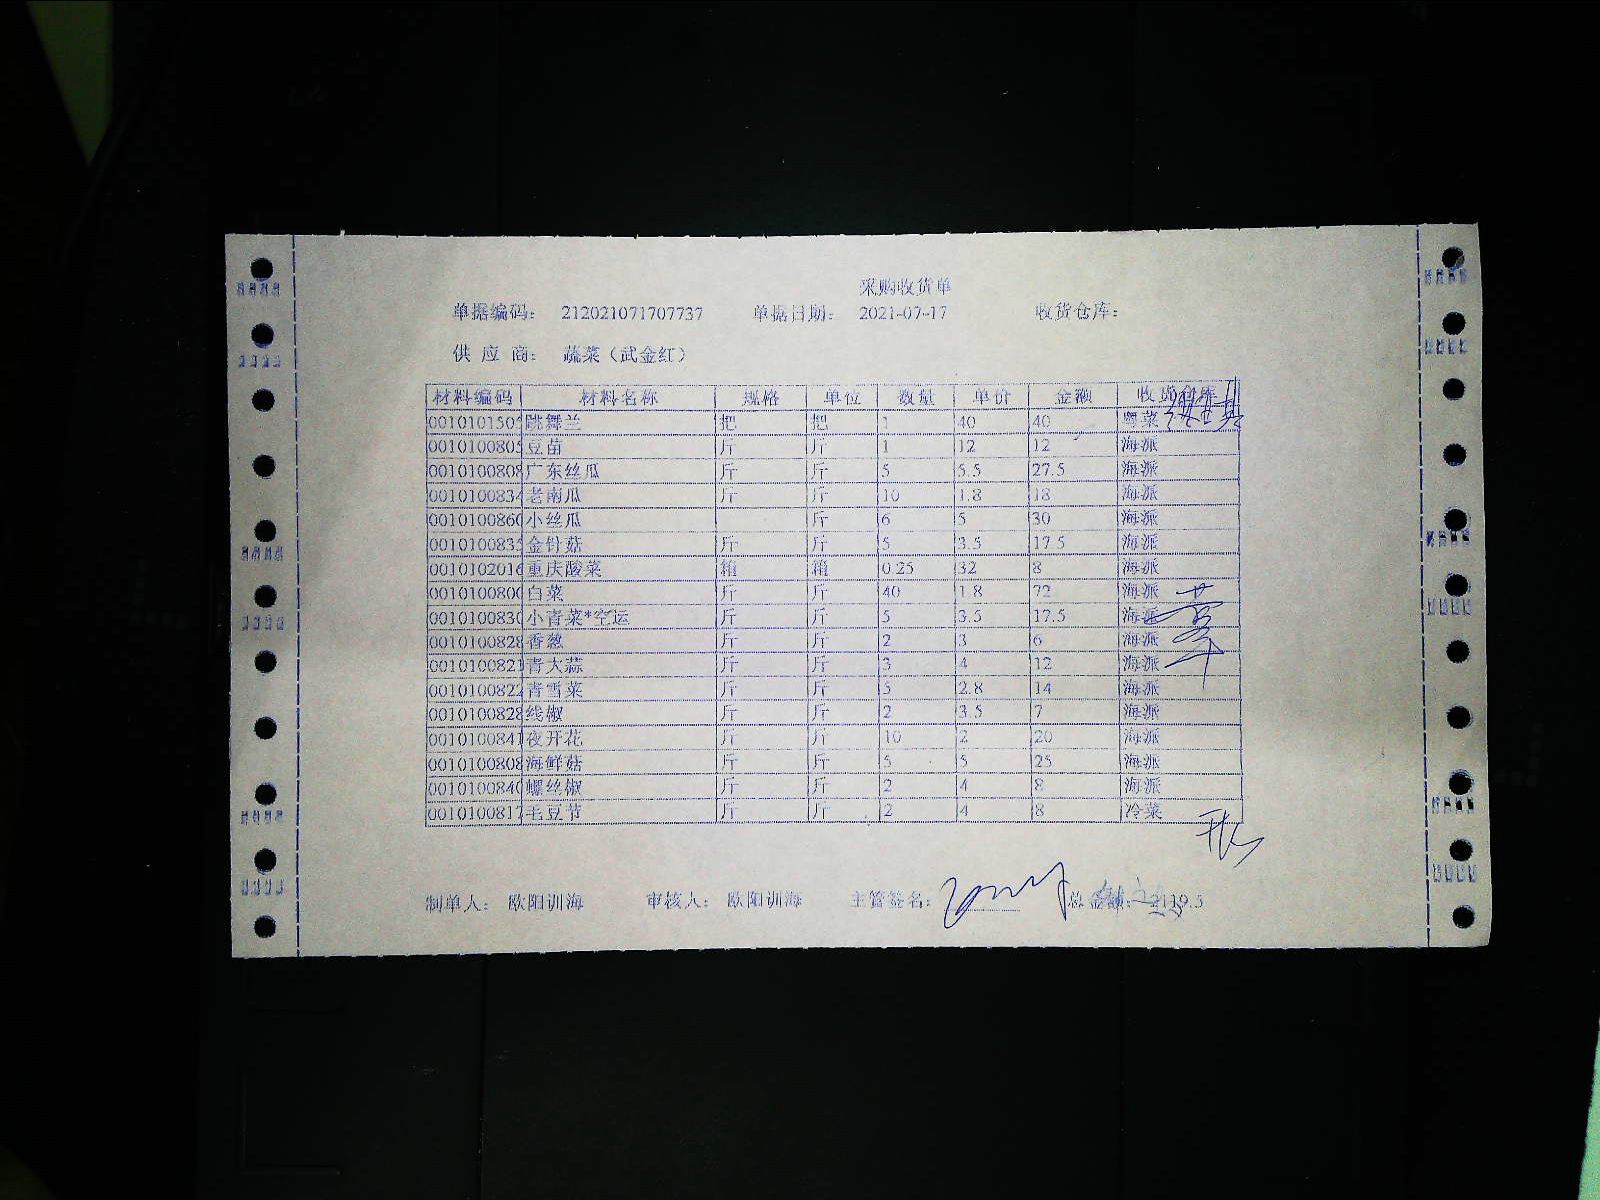 采购收货单
单据编码： 212021071707737 单据日期： 2021-07-17 收货仓库：
供 应 商： 蔬菜（武金红）
材料编码 材料名称 规格 单位 数量 单价 金额 收货仓库
0010101505 跳舞兰 把 把 1 40 40 粤菜
0010100805 豆苗 斤 斤 1 12 12 海派
0010100808 广东丝瓜 斤 斤 5 5.5 27.5 海派
0010100834 老南瓜 斤 斤 10 1.8 18 海派
0010100860 小丝瓜 斤 6 5 30 海派
0010100835 金针菇 斤 斤 5 3.5 17.5 海派
0010102016 重庆酸菜 箱 箱 0.25 32 8 海派
0010100800 白菜 斤 斤 40 1.8 72 海派
0010100830 小青菜*空运 斤 斤 5 3.5 17.5 海派
0010100828 香葱 斤 斤 2 3 6 海派
0010100821 青大蒜 斤 斤 3 4 12 海派
0010100822 青雪菜 斤 斤 5 2.8 14 海派
0010100828 线椒 斤 斤 2 3.5 7 海派
0010100841 夜开花 斤 斤 10 2 20 海派
0010100808 海鲜菇 斤 斤 5 5 25 海派
0010100840 螺丝椒 斤 斤 2 4 8 海派
0010100817 毛豆节 斤 斤 2 4 8 冷菜
制单人： 欧阳训海 审核人： 欧阳训海 主管签名： 总金额：